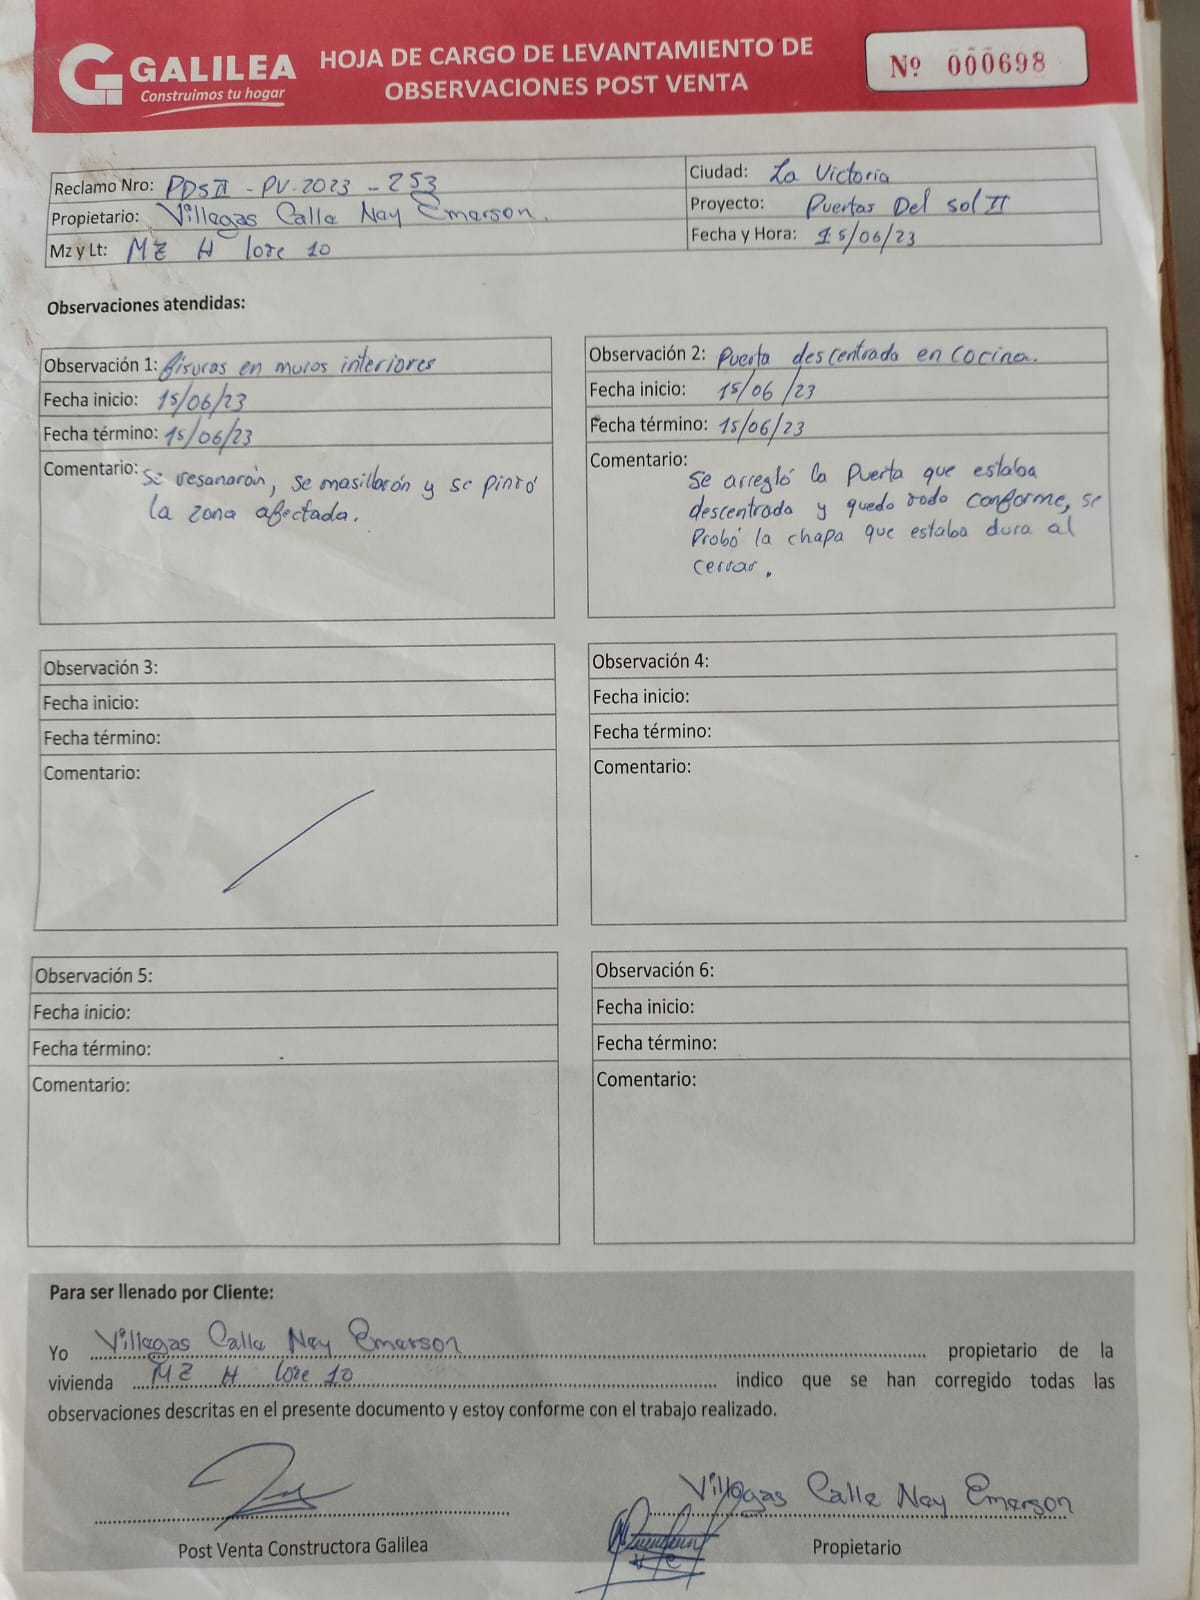 GALILEA
Construimos tu hogar
HOJA DE CARGO DE LEVANTAMIENTO DE
OBSERVACIONES POST VENTA
Nº 000698
Reclamo Nro: PDSII - PV-2023 - 253
Ciudad: La Victoria
Propietario: Villegas Calle Ney Emerson.
Proyecto: Puertas Del sol II
Mz y Lt: MZ H lote 10
Fecha y Hora: 15/06/23
Observaciones atendidas:
Observación 1: fisuras en muros interiores
Fecha inicio: 15/06/23
Fecha término: 15/06/23
Comentario: Se resanarón, se masillarón y se pintó
la zona afectada.
Observación 2: Puerta descentrada en cocina.
Fecha inicio: 15/06/23
Fecha término: 15/06/23
Comentario: Se arregló la Puerta que estaba
descentrada y quedo todo conforme, se
Probó la chapa que estaba dura al
cerrar.
Observación 3:
Fecha inicio:
Fecha término:
Comentario:
Observación 4:
Fecha inicio:
Fecha término:
Comentario:
Observación 5:
Fecha inicio:
Fecha término:
Comentario:
Observación 6:
Fecha inicio:
Fecha término:
Comentario:
Para ser llenado por Cliente:
Yo Villegas Calle Ney Emerson propietario de la
vivienda MZ H lote 10 indico que se han corregido todas las
observaciones descritas en el presente documento y estoy conforme con el trabajo realizado.
Villegas Calle Ney Emerson
Post Venta Constructora Galilea
Propietario